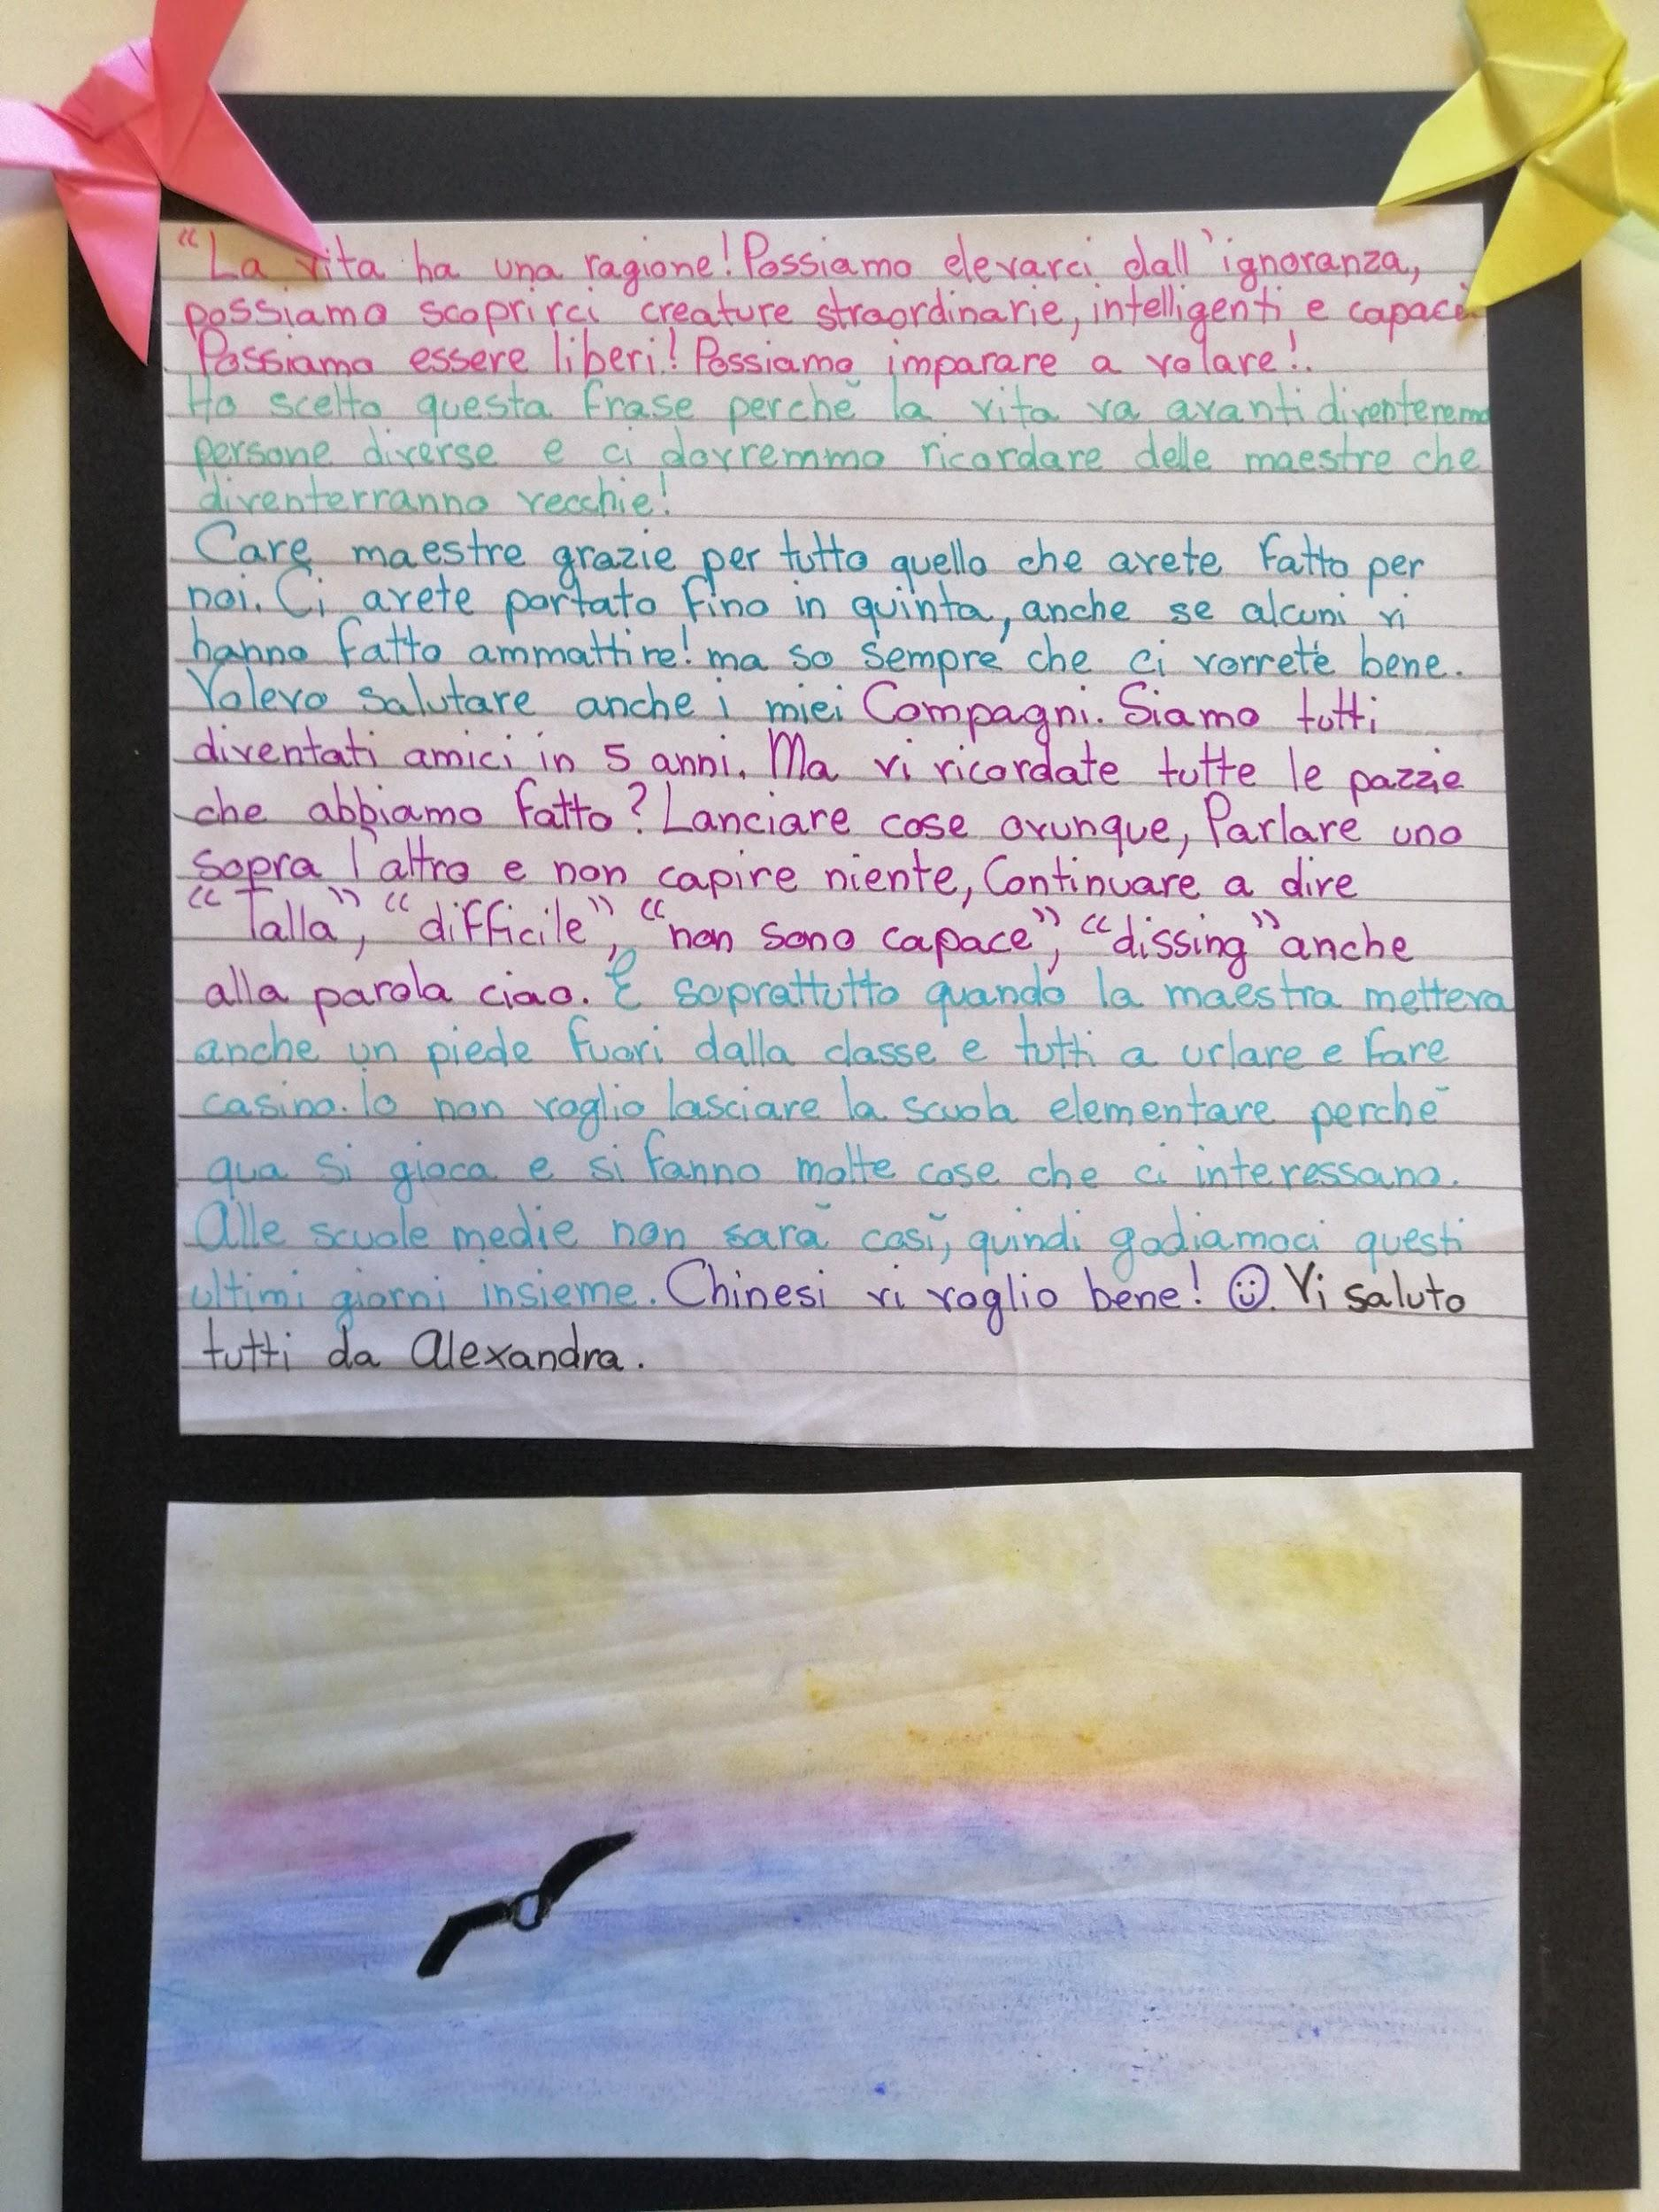 “La vita ha una ragione! Possiamo elevarci dall'ignoranza,
possiamo scoprirci creature straordinarie, intelligenti e capaci.
Possiamo essere liberi! Possiamo imparare a volare!.
Ho scelto questa frase perchè la vita va avanti diventeremo
persone diverse e ci dovremmo ricordare delle maestre che
diventerranno vecchie!
Care maestre grazie per tutto quello che avete fatto per
noi. Ci avete portato fino in quinta, anche se alcuni vi
hanno fatto ammattire! ma so sempre che ci vorrete bene.
Volevo salutare anche i miei Compagni. Siamo tutti
diventati amici in 5 anni. Ma vi ricordate tutte le pazzie
che abbiamo fatto? Lanciare cose ovunque, Parlare uno
sopra l'altro e non capire niente, Continuare a dire
“Talla”, “difficile”, “non sono capace”, “dissing” anche
alla parola ciao. E soprattutto quando la maestra metteva
anche un piede fuori dalla classe e tutti a urlare e fare
casino. Io non voglio lasciare la scuola elementare perchè
qua si gioca e si fanno molte cose che ci interessano.
Alle scuole medie non sarà così, quindi godiamoci questi
ultimi giorni insieme. Chinesi vi voglio bene! ☺. Vi saluto
tutti da Alexandra.